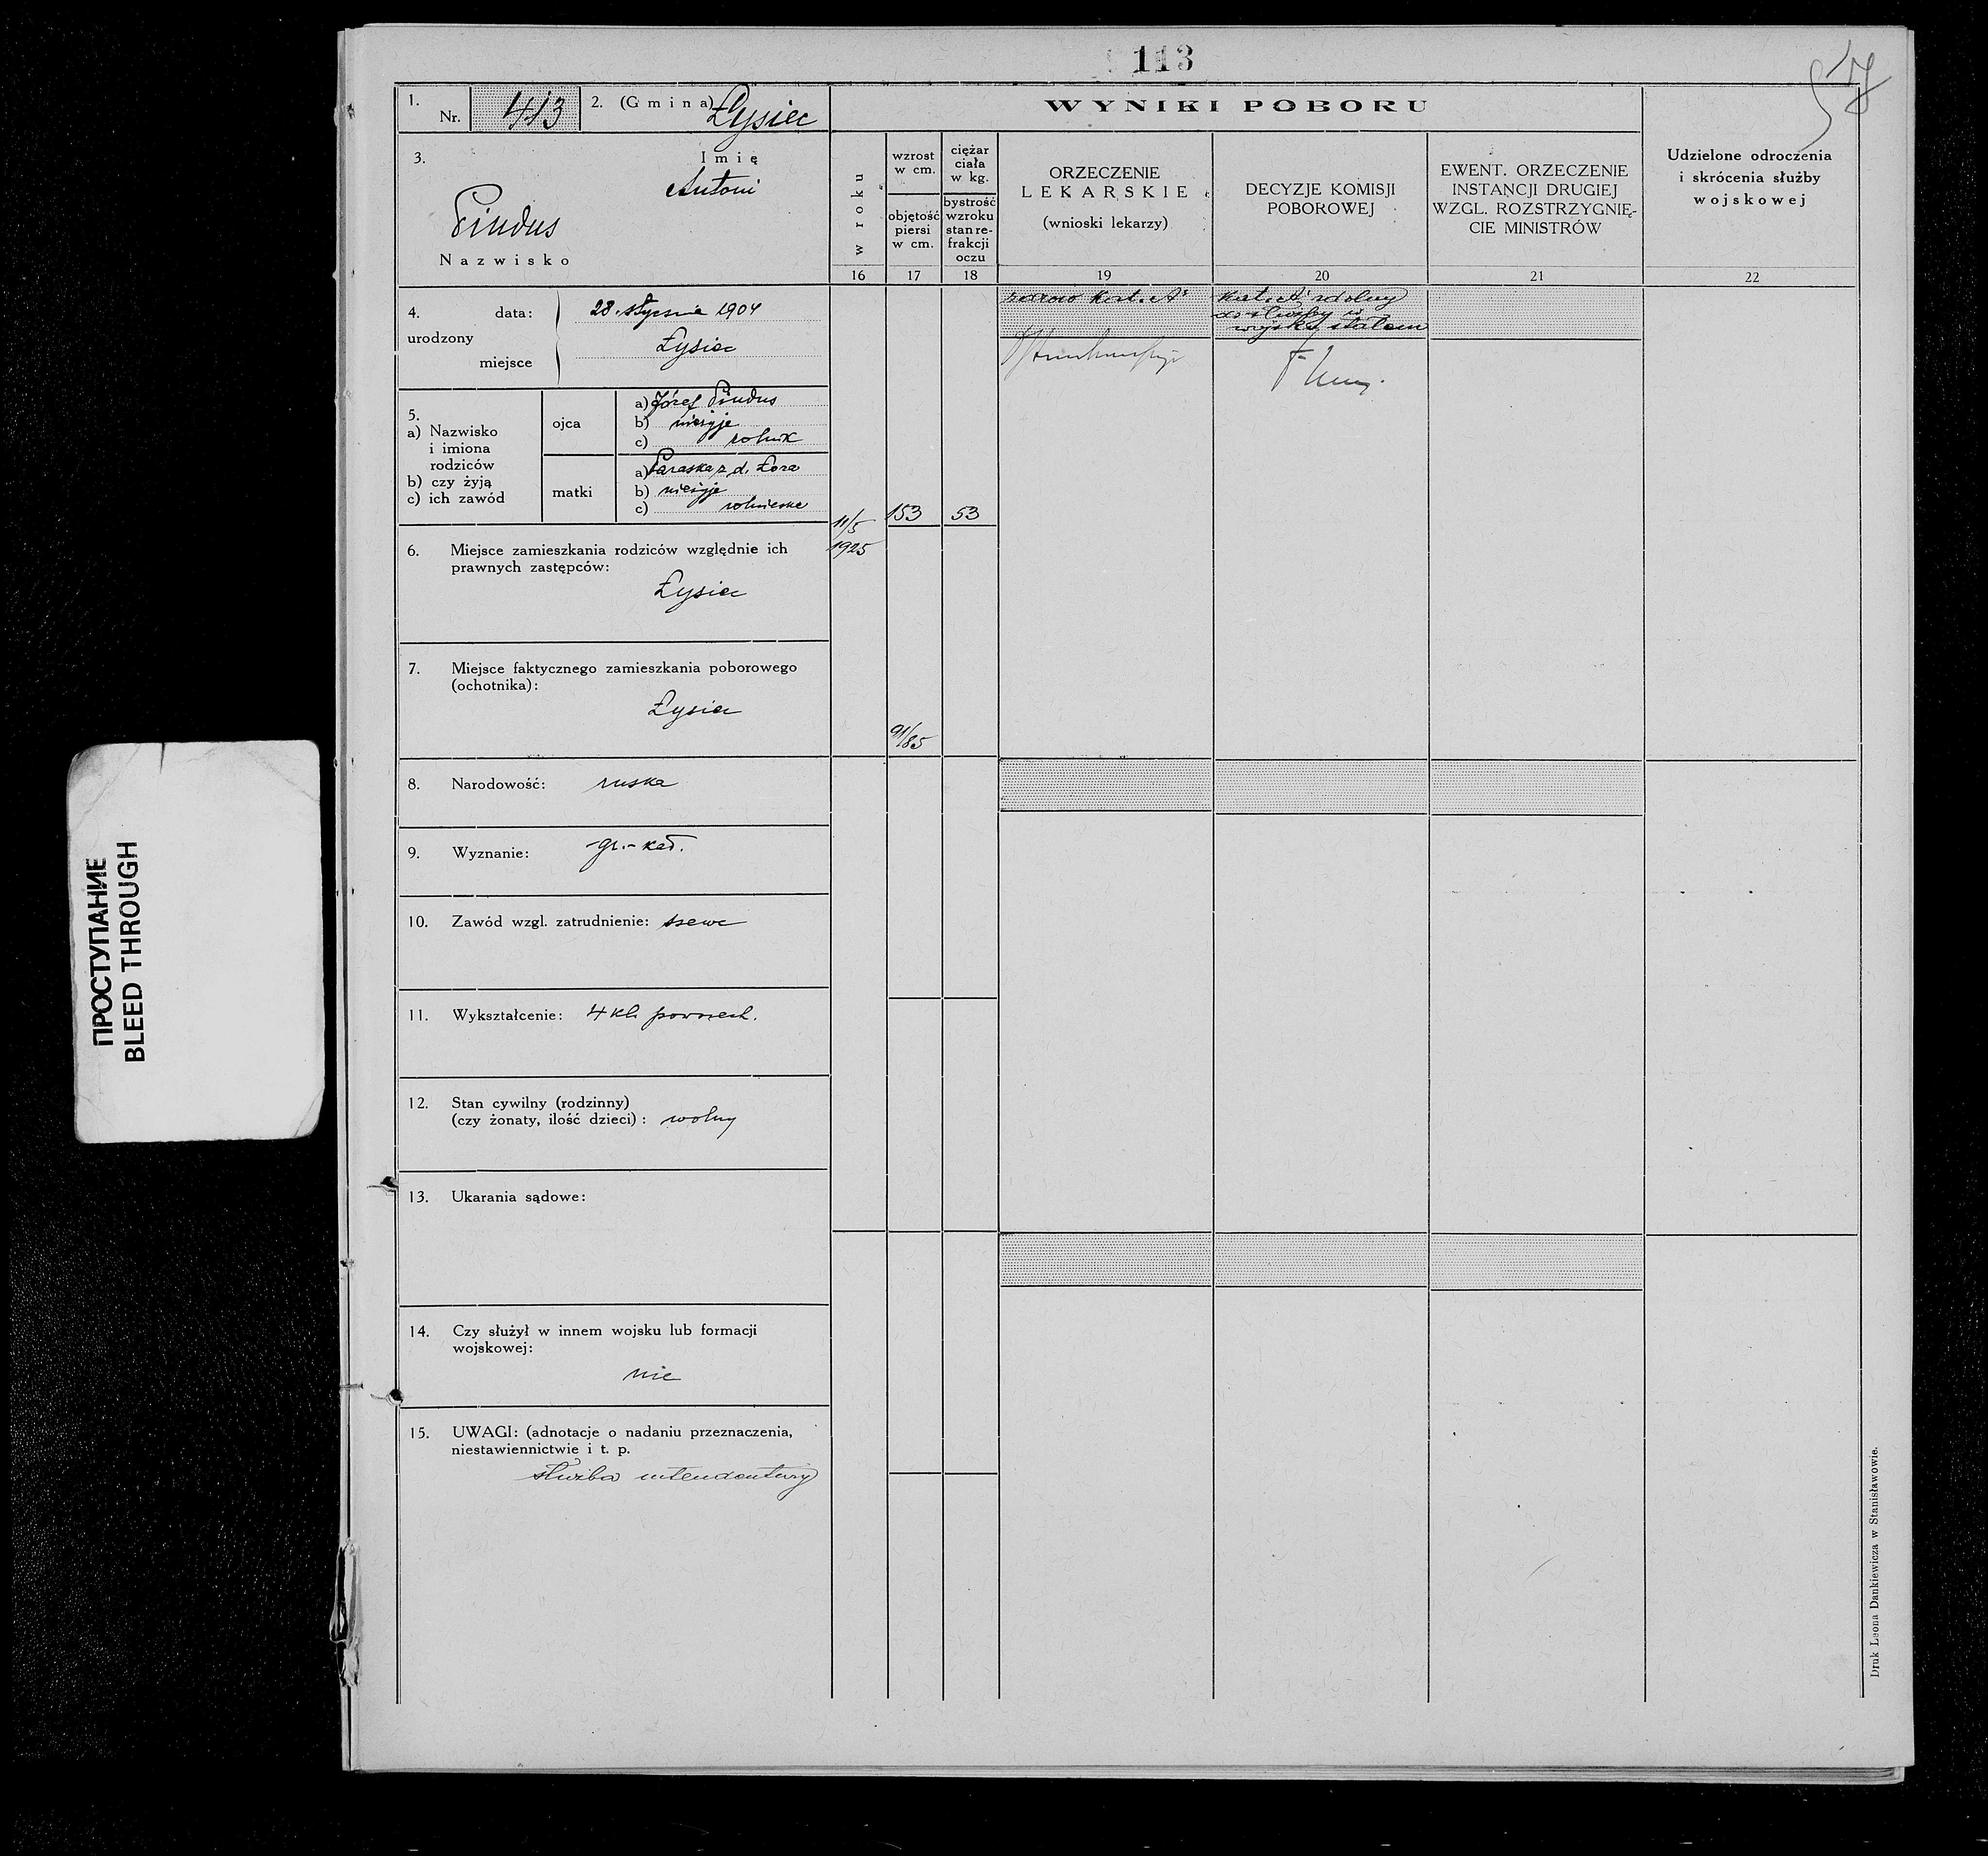 113
1.
Nr. 413
2. (Gmina) Łysiec
WYNIKI POBORU
3.
Imię
Antoni
Pindus
Nazwisko
w roku
wzrost
w cm.
objętość
piersi
w cm.
ciężar
ciała
w kg.
bystrość
wzroku
stan re-
frakcji
oczu
ORZECZENIE
LEKARSKIE
(wnioski lekarzy)
DECYZJE KOMISJI
POBOROWEJ
EWENT. ORZECZENIE
INSTANCJI DRUGIEJ
WZGL. ROZSTRZYGNIĘ-
CIE MINISTRÓW
Udzielone odroczenia
i skrócenia służby
wojskowej
16
17
18
19
20
21
22
4.
urodzony
data: 28. stycznia 1904
miejsce Łysiec
kat. A
kat. A zdolny
do służby w
wojsku stałem
5.
a) Nazwisko
i imiona
rodziców
b) czy żyją
c) ich zawód
ojca
a) Józef Pindus
b) nieżyje
c) rolnik
matki
a) Paraska z d. Łora
b) nieżyje
c) rolniczka
11/5
1925
153
53
6. Miejsce zamieszkania rodziców względnie ich
prawnych zastępców:
Łysiec
7. Miejsce faktycznego zamieszkania poborowego
(ochotnika):
Łysiec
91/85
8. Narodowość: ruska
9. Wyznanie: gr.-kat.
10. Zawód wzgl. zatrudnienie: szewc
11. Wykształcenie: 4 kl. powszech.
12. Stan cywilny (rodzinny)
(czy żonaty, ilość dzieci): wolny
13. Ukarania sądowe:
14. Czy służył w innem wojsku lub formacji
wojskowej:
nie
15. UWAGI: (adnotacje o nadaniu przeznaczenia,
niestawiennictwie i t. p.
służba intendentury
Druk Leona Dankiewicza w Stanisławowie.
ПРОСТУПАНИЕ
BLEED THROUGH